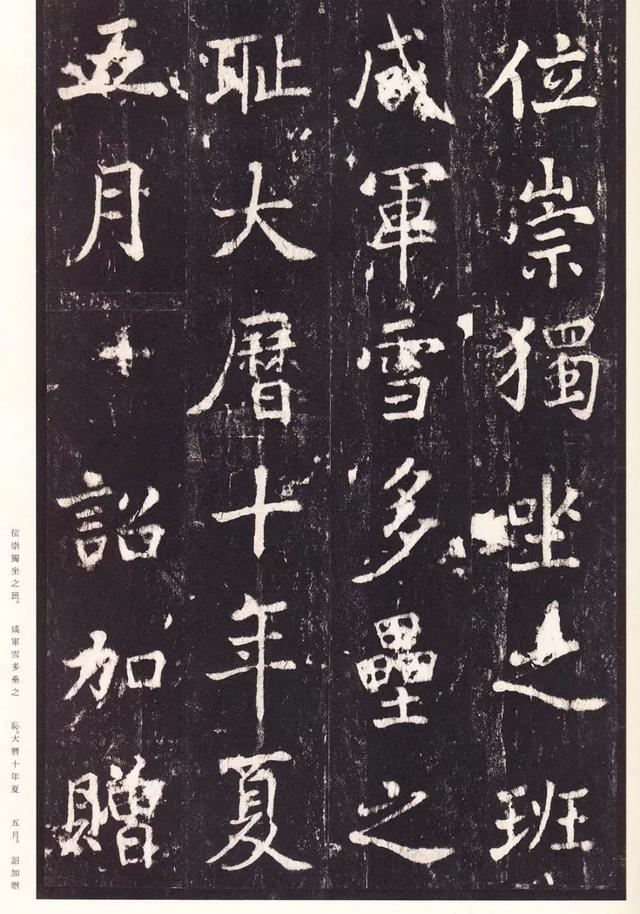 位崇獨坐之班
咸軍雪多壘之
耻大曆十年夏
五月詔加贈
位崇獨坐之班。 咸軍雪多壘之 恥。大曆十年夏 五月。詔加贈